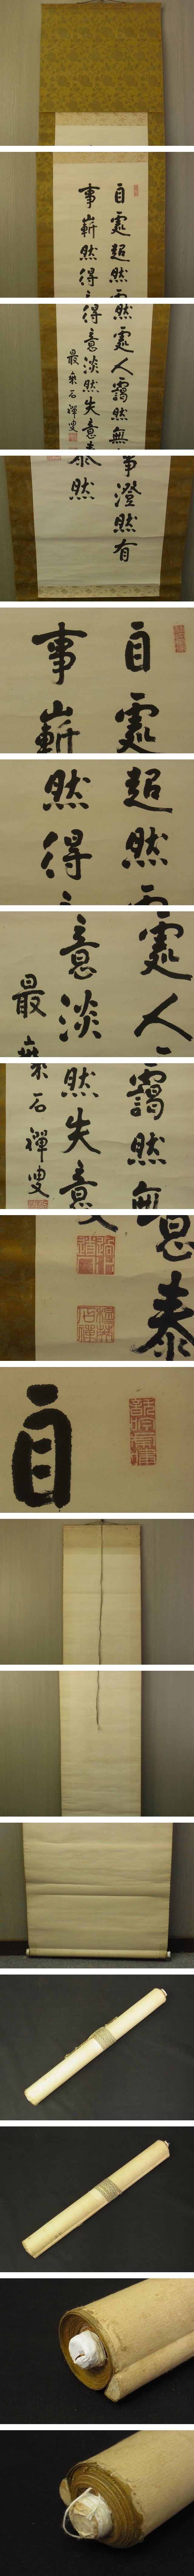 自處超然處人藹然無事澄然有
事嶄然得意淡然失意泰然
最乘石禪叟